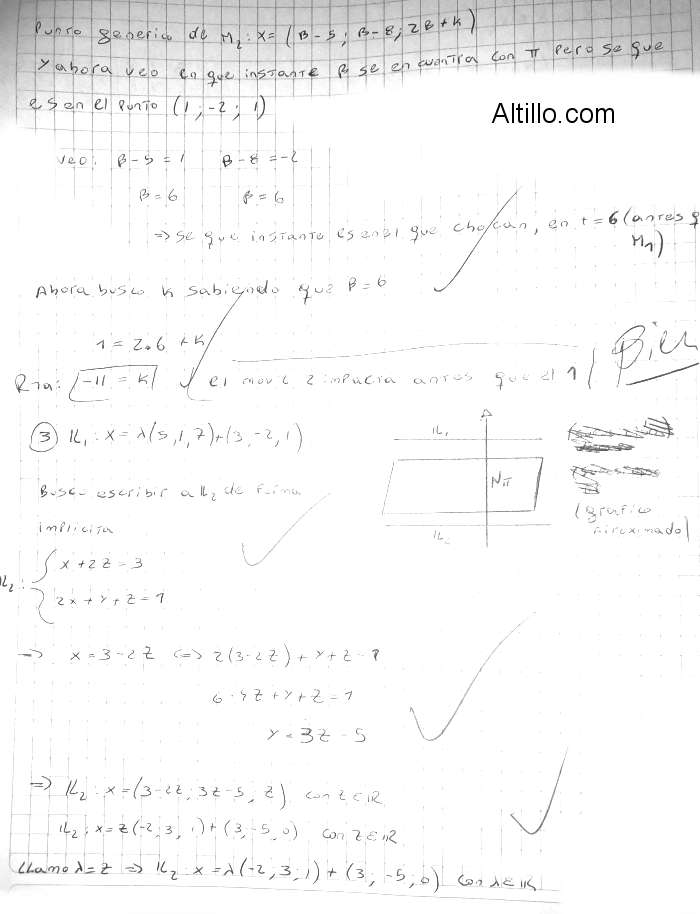 Punto generico de M₂: X = (β-5; β-8; 2β+K)
Y ahora veo en que instante β se encuentra con π pero se que
es en el punto (1; -2; 1)
Altillo.com
Veo: β-5 = 1 β-8 = -2
β = 6 β = 6
⇒ Se que instante es en el que chocan, en t = 6 (antes q
M₁)
Ahora busco K sabiendo que β = 6
1 = 2.6 + K
Rta: -11 = K el movil 2 impacta antes que el 1
Bien
③ IL₁: X = λ(5,1,7)+(3,-2,1)
IL₁
Nπ
IL₂
(grafico
aproximado)
Busco escribir a IL₂ de forma
implicita
IL₂: { x+2z=3
2x+y+z=1
⇒ x=3-2z ⇔ 2(3-2z)+y+z=1
6-4z+y+z=1
y=3z-5
⇒ IL₂: X=(3-2z, 3z-5, z) con z∈IR
IL₂: X=z(-2,3,1)+(3,-5,0) con z∈IR
Llamo λ=z ⇒ IL₂: X=λ(-2,3,1)+(3,-5,0) con λ∈IR